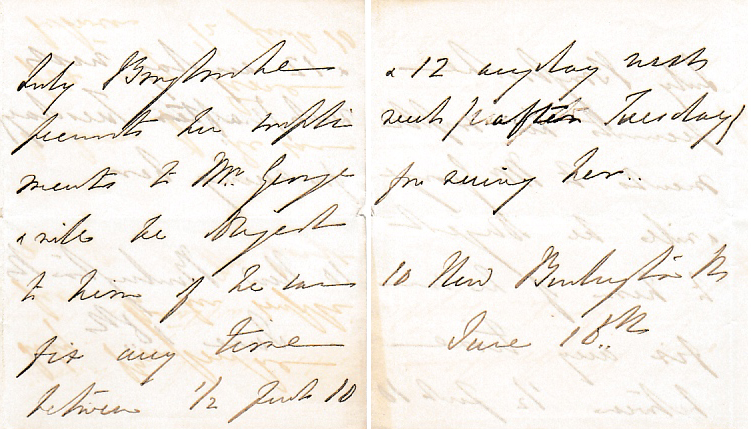 Lady Bingbroke
presents her compli
ments to Mr. George
& will be obliged
to him if he can
fix any time
between 1/2 past 10
& 12 any day next
week (after Tuesday)
for seeing her..
10 New Burlington St
June 18th